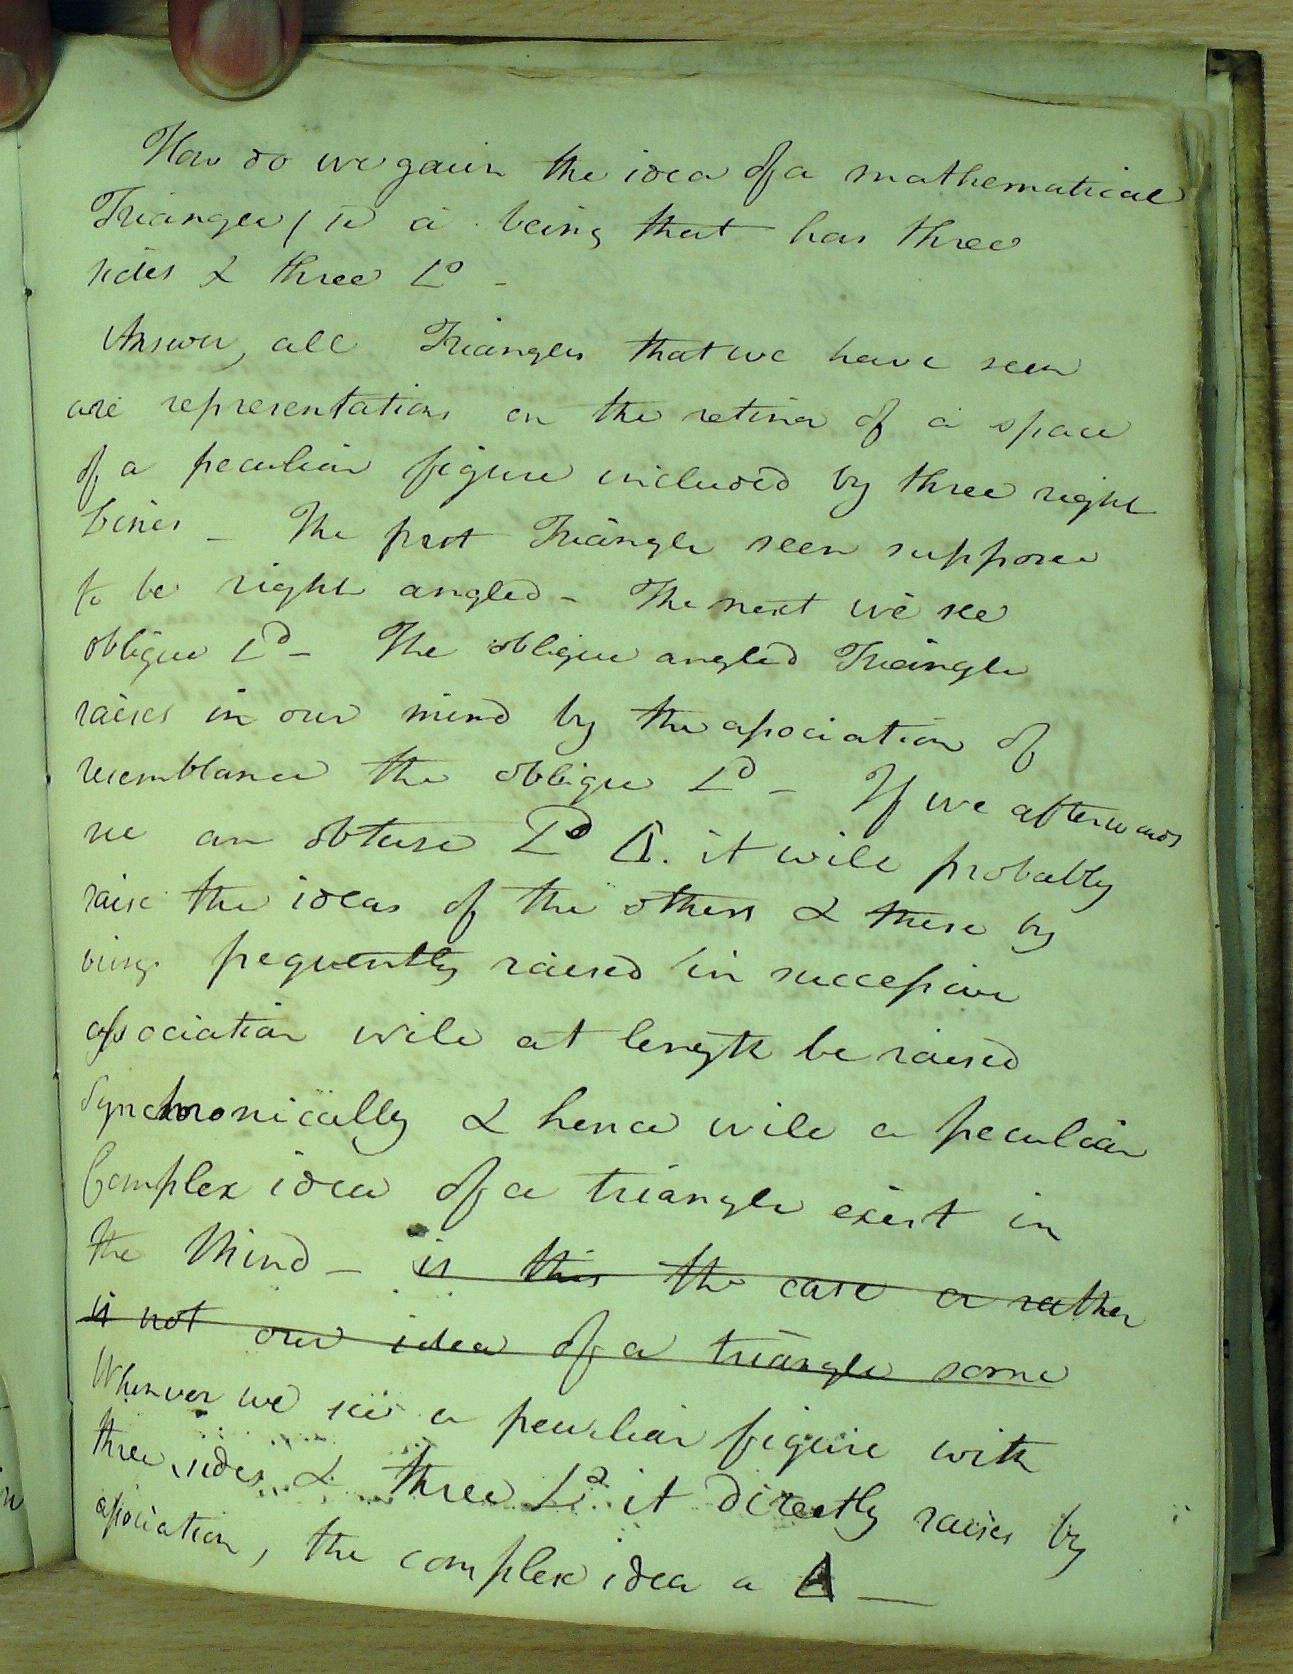 How do we gain the idea of a mathematical
Triangle, ie a being that has three
sides & three ∠s -
Answer, all Triangles that we have seen
are representations on the retina of a space
of a peculiar figure included by three right
Lines - The first Triangle seen suppose
to be right angled - The next we see
oblique ∠d - The oblique angled Triangle
raises in our mind by the association of
resemblance the oblique ∠d - If we afterwards
see an obtuse ∠d Δ. it will probably
raise the ideas of the others & these by
being frequently raised in successive
association will at length be raised
Synchronically & hence will a peculiar
Complex idea of a triangle exist in
the Mind - is this the case or rather
is not our idea of a triangle some
Whenever we see a peculiar figure with
three sides & three ∠s it directly raises by
association, the complex idea a Δ —